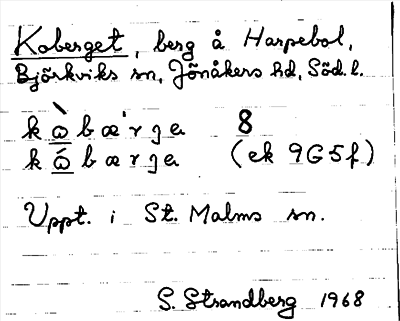 Koberget, berg å Harpebol,
Björkviks sn, Jönåkers hd, Söd. l.
k ɷ̀ b æ ́ r g ɐ 8
k ɷ́ b æ r g ɐ (ek 9G5f)
Uppt. i St. Malms sn.
S. Strandberg 1968